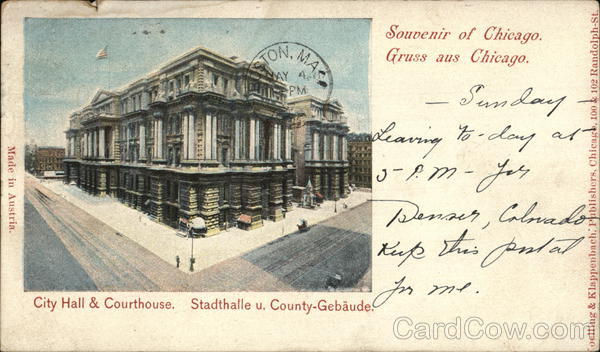 Souvenir of Chicago.
Gruss aus Chicago.
TON, MA
MAY 4
PM
— Sunday —
Leaving to-day at
5 P.M — for
Denver, Colorado
Keep this postal
for me.
City Hall & Courthouse. Stadthalle u. County-Gebäude.
Made in Austria.
& Klappenbach, Publishers, Chicago, 100 & 102 Randolph-St.
CardCow.com